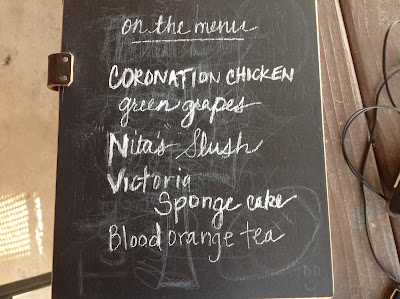 on the menu
CORONATION CHICKEN
green grapes
"Nita's" Slush
Victoria
Sponge cake
Blood orange tea